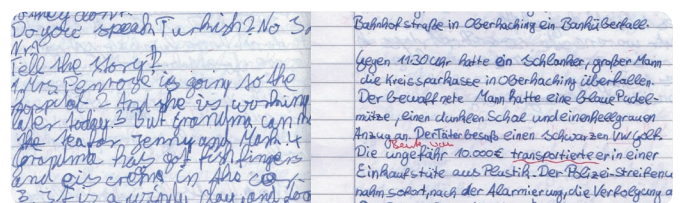 Do you speak Turkish? No 3.
Tell the story!
1. Mrs Penrose is going to the
hospital 2 And she is working
later today. 3 But Grandma can
the tea for Jenny and Mark. 4
Grandma has got fish fingers
and eiscream in the
3. 3 It is a windy day and
Bahnhofstraße in Oberhaching ein Banküberfall.
Gegen 11:30 Uhr hatte ein schlanker, großer Mann
die Kreissparkasse in Oberhaching überfallen.
Der bewaffnete Mann hatte eine blaue Pudel-
mütze, einen dunklen Schal und einen hellgrauen
Anzug an. Der Täter besaß einen schwarzen VW Golf.
Die ungefähr 10.000€ transportierte er in einer
Einkaufstüte aus Plastik. Der Polizei-Streifenw
nahm sofort, nach der Alarmierung, die Verfolgung a